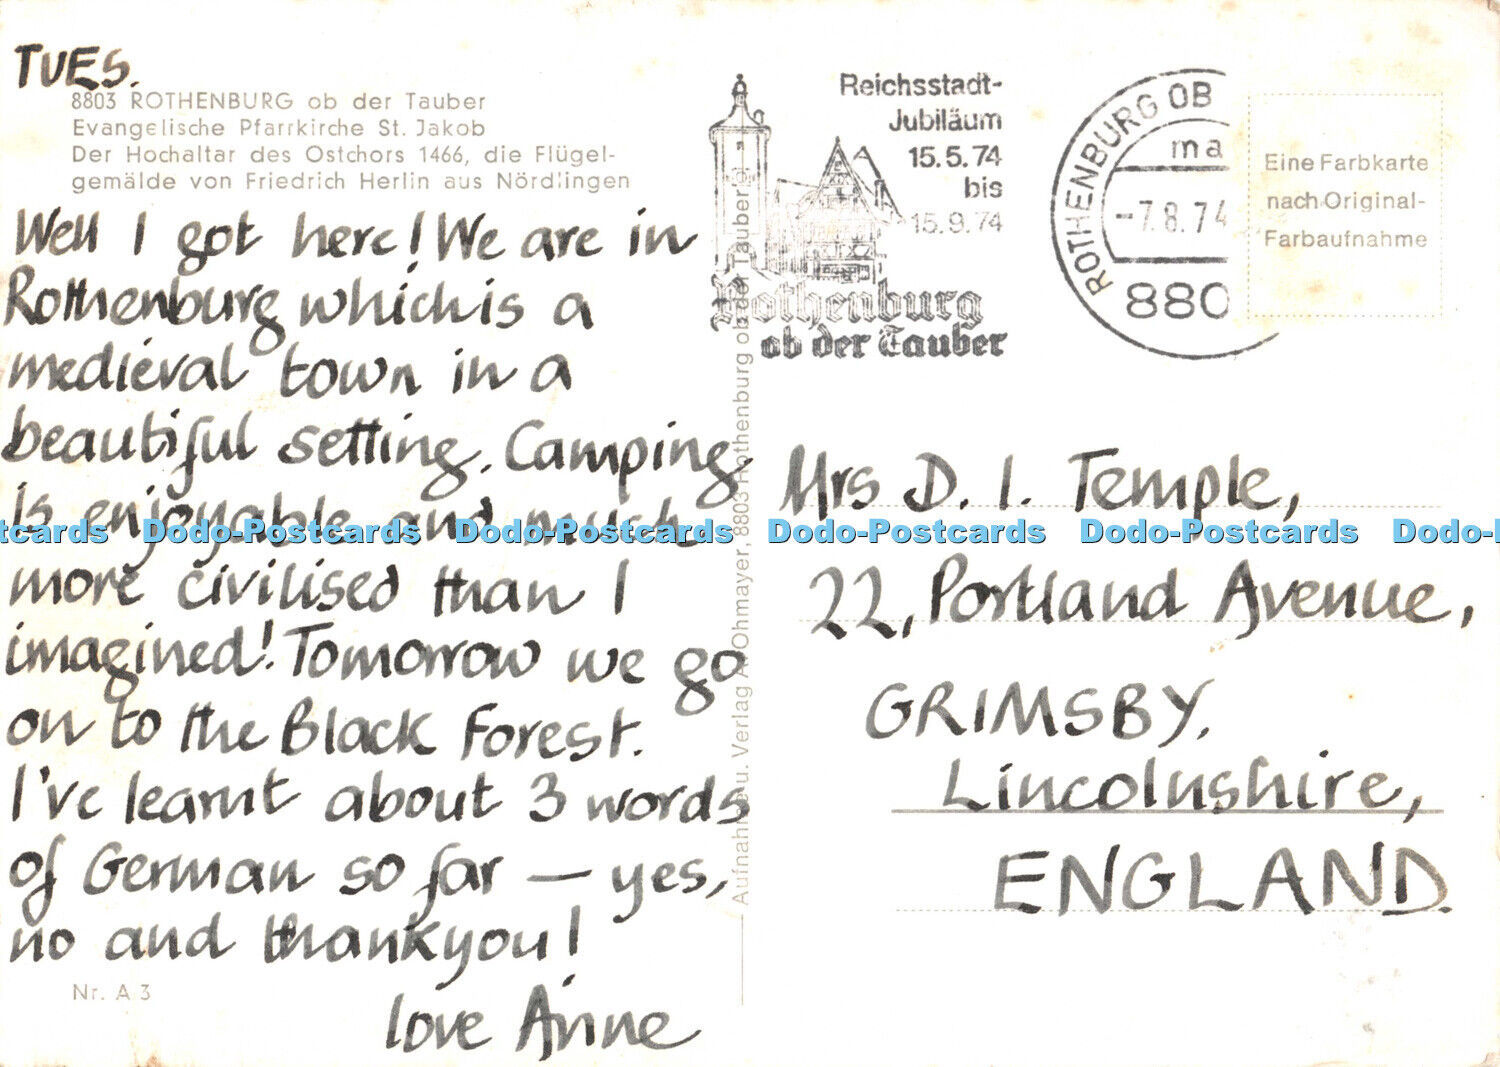 TUES.
8803 ROTHENBURG ob der Tauber
Evangelische Pfarrkirche St. Jakob
Der Hochaltar des Ostchors 1466, die Flügel-
gemälde von Friedrich Herlin aus Nördlingen
Well I got here! We are in
Rothenburg which is a
medieval town in a
beautiful setting. Camping
is enjoyable and much
more civilised than I
imagined! Tomorrow we go
on to the Black Forest.
I've learnt about 3 words
of German so far — yes,
no and thankyou!
love Anne
Nr. A 3
Aufnahme u. Verlag A. Ohmayer, 8803 Rothenburg ob der Tauber
Reichsstadt-
Jubiläum
15.5.74
bis
15.9.74
Rothenburg
ob der Tauber
ROTHENBURG OB
ma
-7.8.74
880
Eine Farbkarte
nach Original-
Farbaufnahme
Mrs D. I. Temple,
22, Portland Avenue,
GRIMSBY,
Lincolnshire,
ENGLAND.
Dodo-Postcards Dodo-Postcards Dodo-Postcards Dodo-Postcards Dodo-Postcards